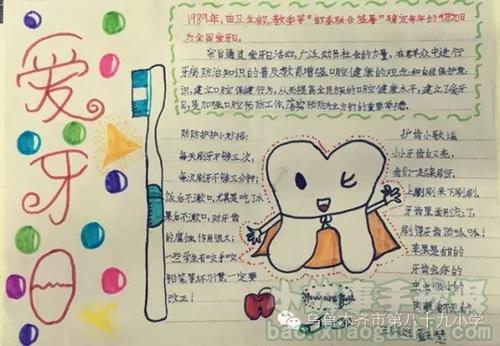 爱牙日
1989年,由卫生部、教委等部委联合签署,确定每年的9月20日
为全国爱牙日。
宗旨通过爱牙日活动,广泛动员社会的力量,在群众中进行
牙病防治知识的普及教育,增强口腔健康的观念和自我保护意
识,建立口腔保健行为,从而提高全民族的口腔健康水平,建立了爱牙
日,是加强口腔预防工作,落实预防为主方针的重要举措。
防护护小妙招:
每天刷牙不够三次,
每次刷牙不够三分钟;
饭后不漱口,尤其是吃了水
果后不漱口,对牙齿
的腐蚀作用很大;
一些学生有咬手和咬
铅笔等坏习惯一定要
改正!
护齿小歌谣
小小牙齿白又亮,
我们一起来刷牙。
上刷刷来下刷刷,
牙齿里面别忘了,
刷得牙齿顶呱呱!
苹果是甜的
牙齿会疼的
虫虫很小的
乌鲁木齐市第八十九小学